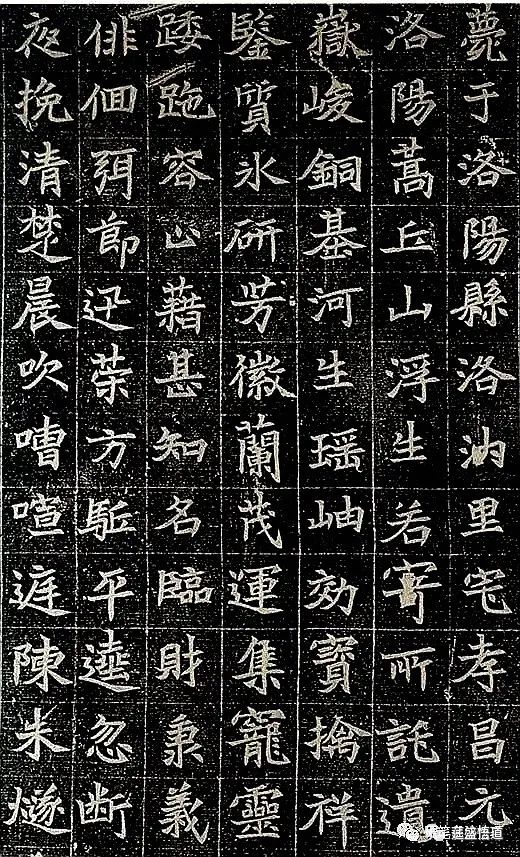 薨于洛陽縣洛汭里宅孝昌元
洛陽蒿丘山浮生若寄所託遺
嶽峻銅基河生瑶岫効寶擒祥
鑒質氷研芳徽蘭茂運集寵靈
踒跎容止藉甚知名臨財秉義
俳佪弭節迅榮方駈平逵忽断
夜挽清楚晨吹嘈喧庭陳朱燧